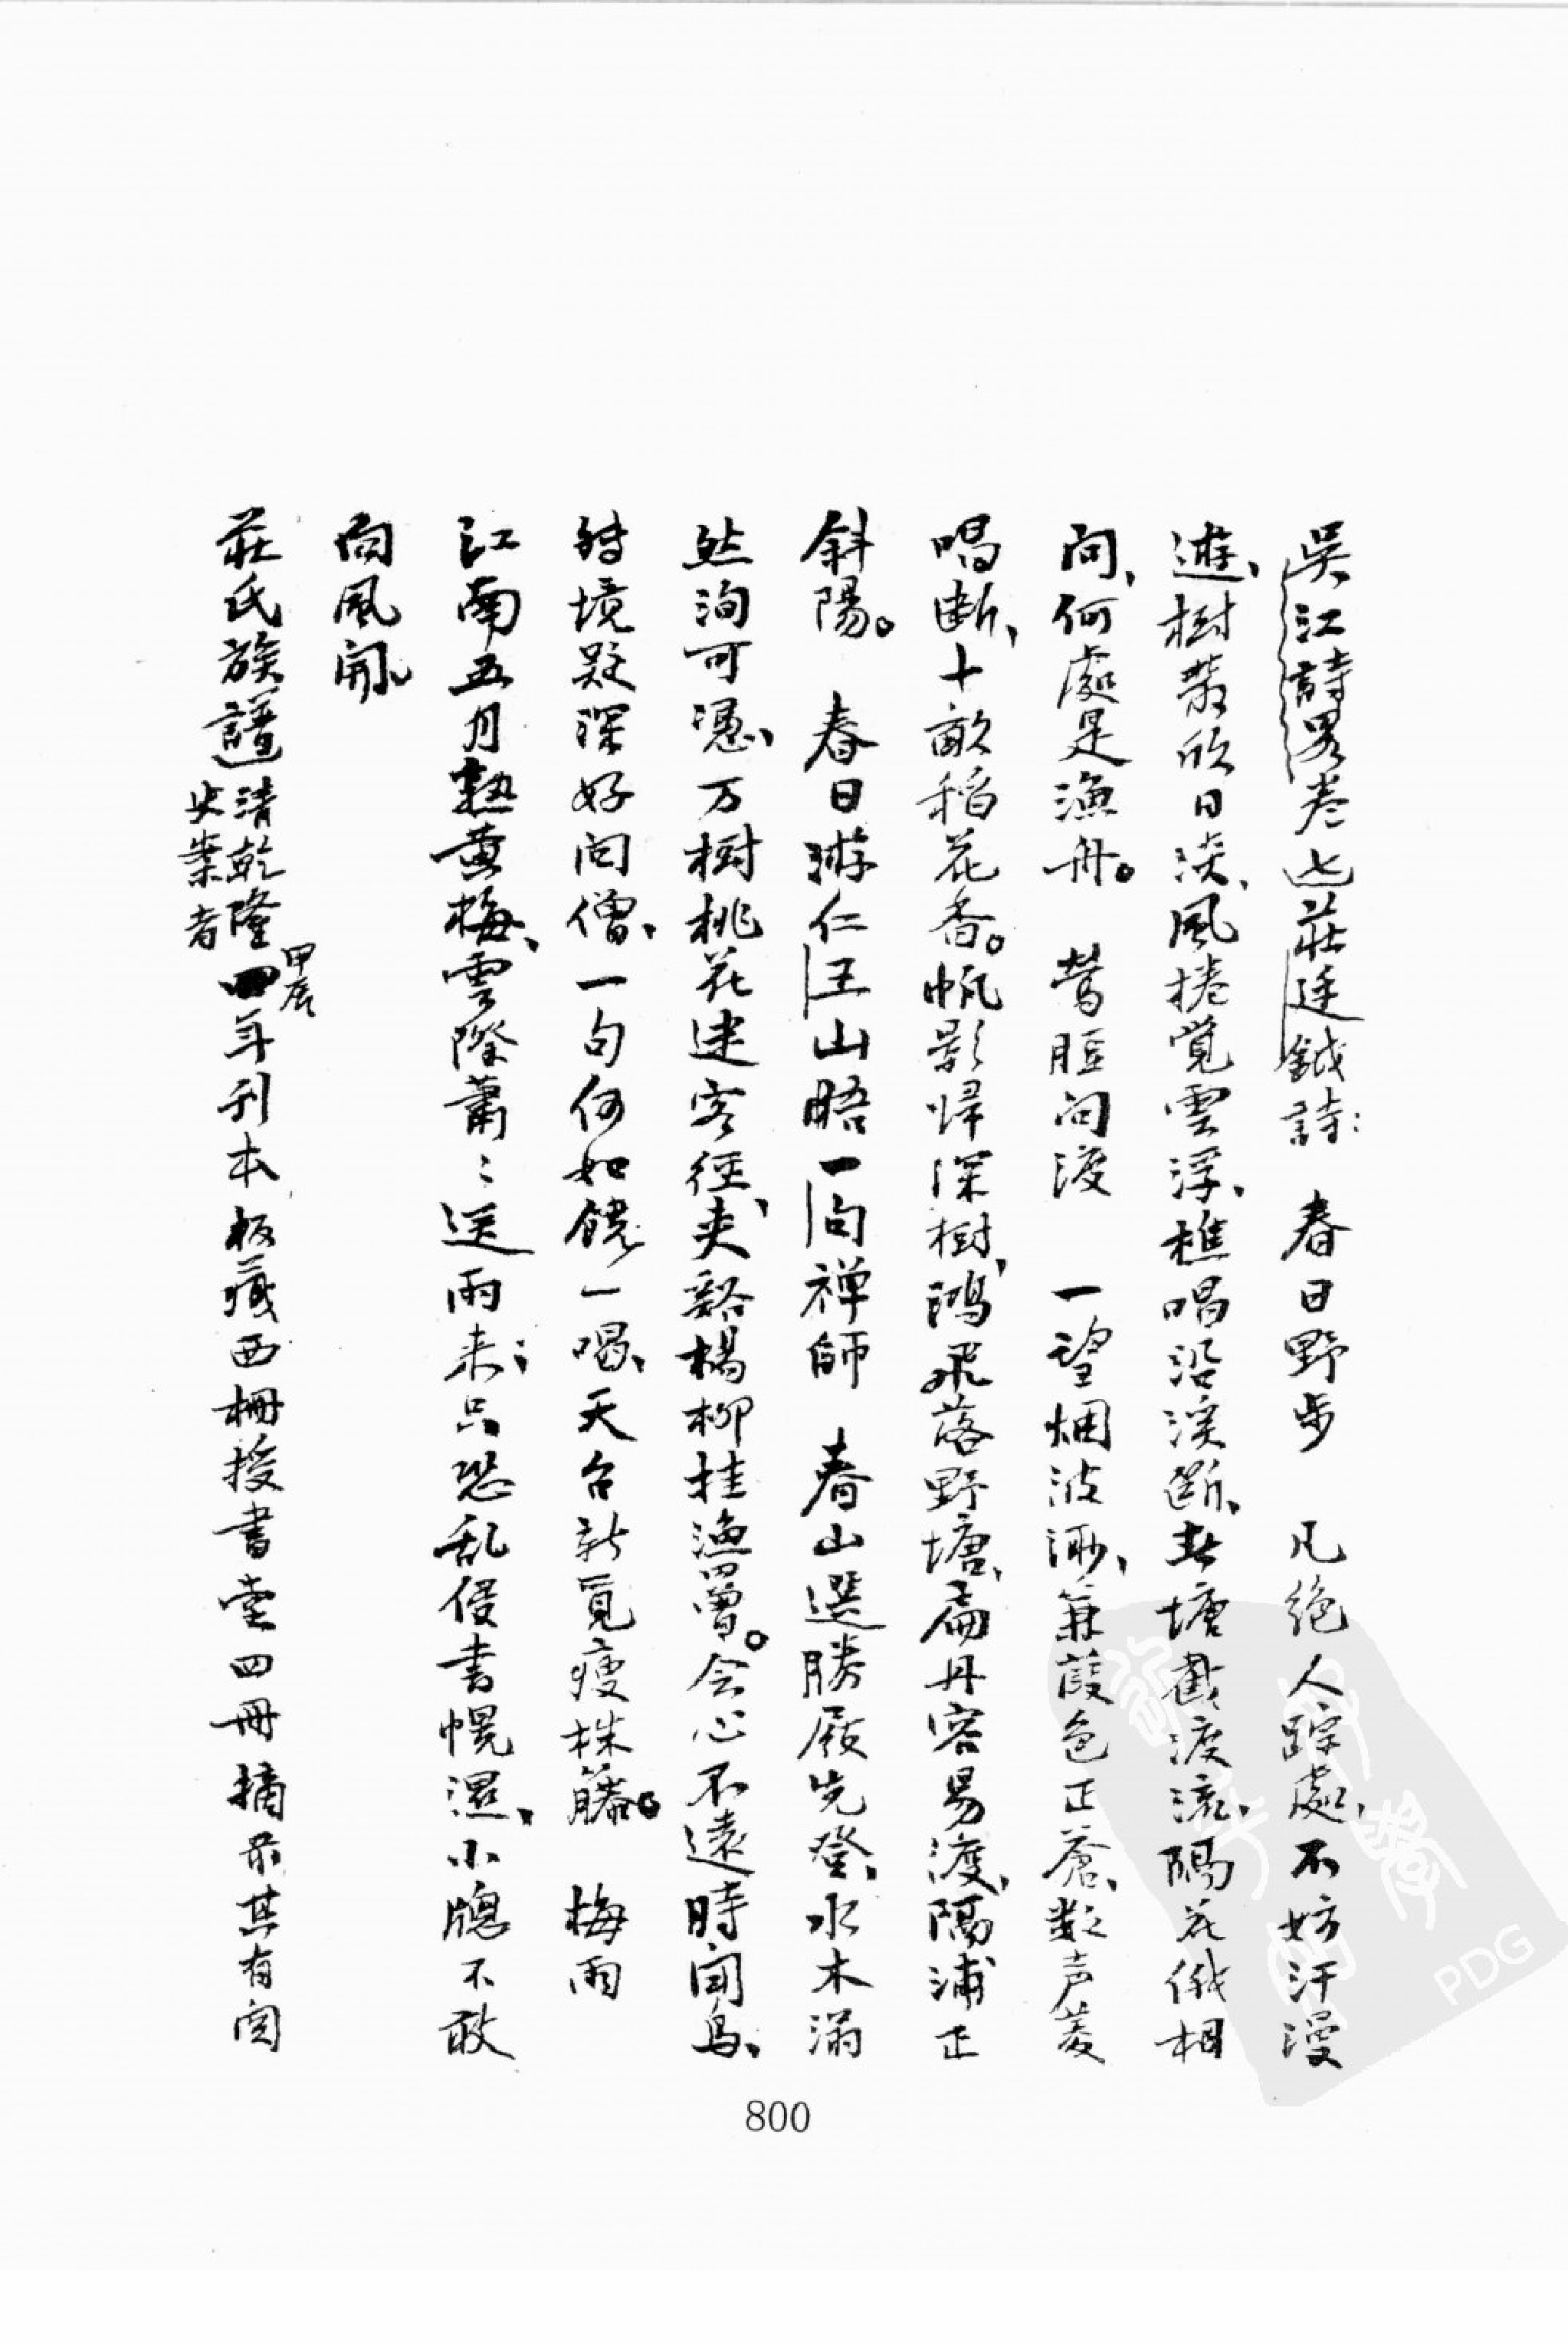 吳江詩畧卷七莊廷鉞詩：　春日野步　凡絕人踪處、不妨汗漫
遊、樹散欣日淡、風捲覺雲浮、樵唱沿溪斷、春塘截渡流、隔花俄相
問、何處是漁舟。　鶯脰问渡　一望烟波渺、蒹葭色正蒼、数声菱
唱断、十畝稻花香。帆影归深樹、鴻飛落野塘、扁舟容易渡、隔浦正
斜陽。　春日游仁王山晤一向禅師　春山選勝屐先登、水木滿
然洵可憑、万樹桃花迷客徑、夹谿楊柳挂漁罾。会心不遠時聞鳥、
轉境疑深好问僧、一句何如饒一喝、天台新覓瘦株藤。　梅雨
江南五月熟黄梅、雲際蕭ミ送雨来；只恐乱侵書幌濕、小牕不敢
向風開。
莊氏族譜 清乾隆四年刊本板藏西柵授書堂四冊摘录其有関
甲辰
史案者
800
PDG